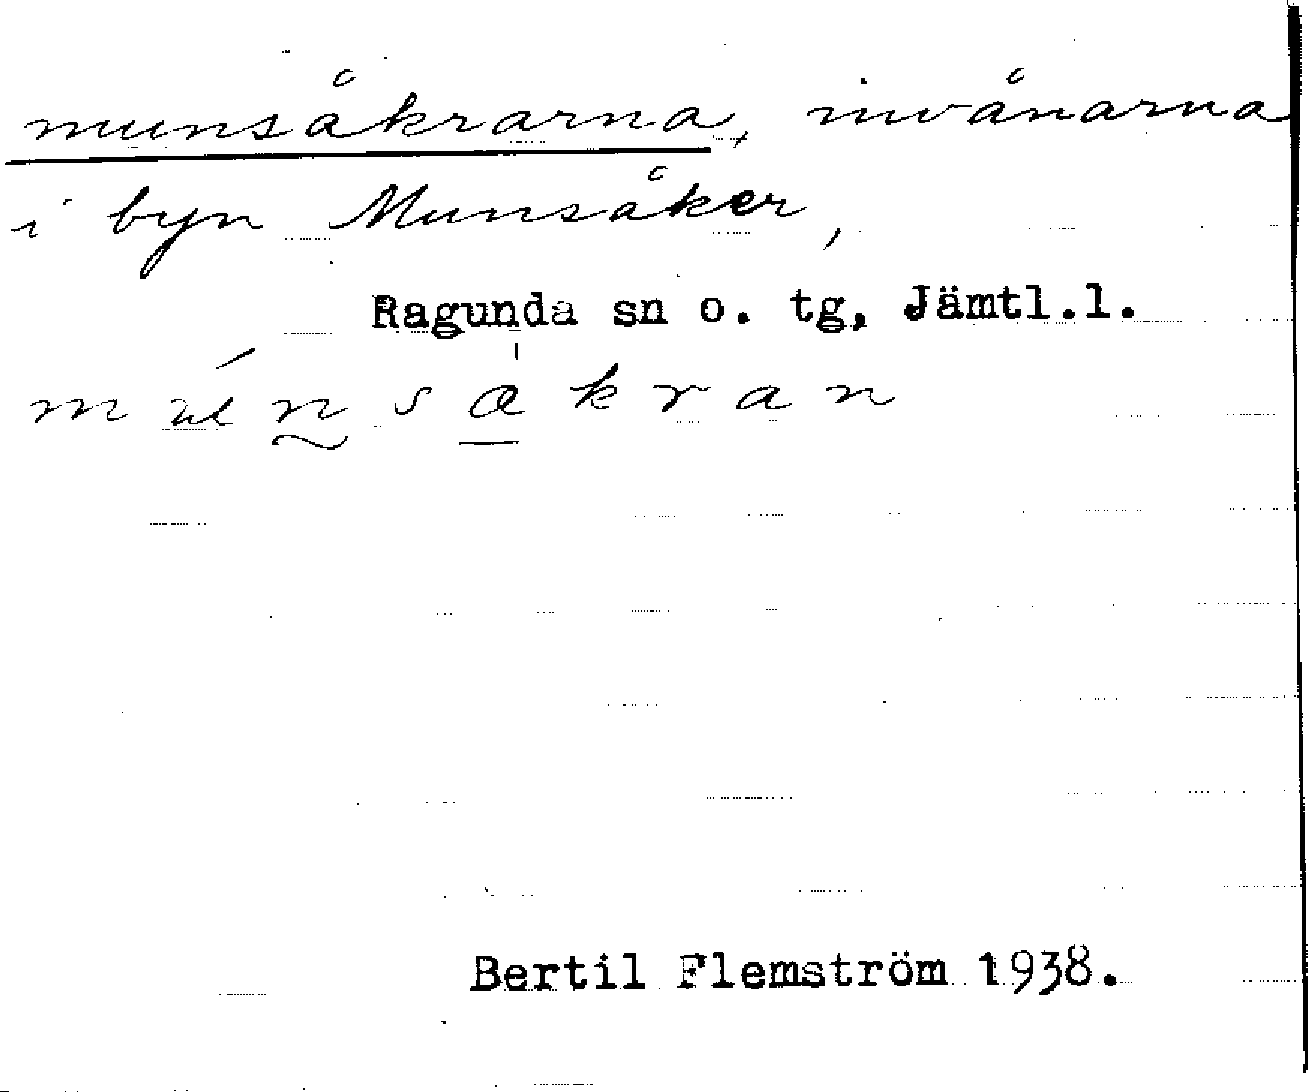 munsåkrarna, invånarna
i byn Munsåker,
Ragunda sn o. tg, Jämtl.l.
Bertil Flemström 1938.